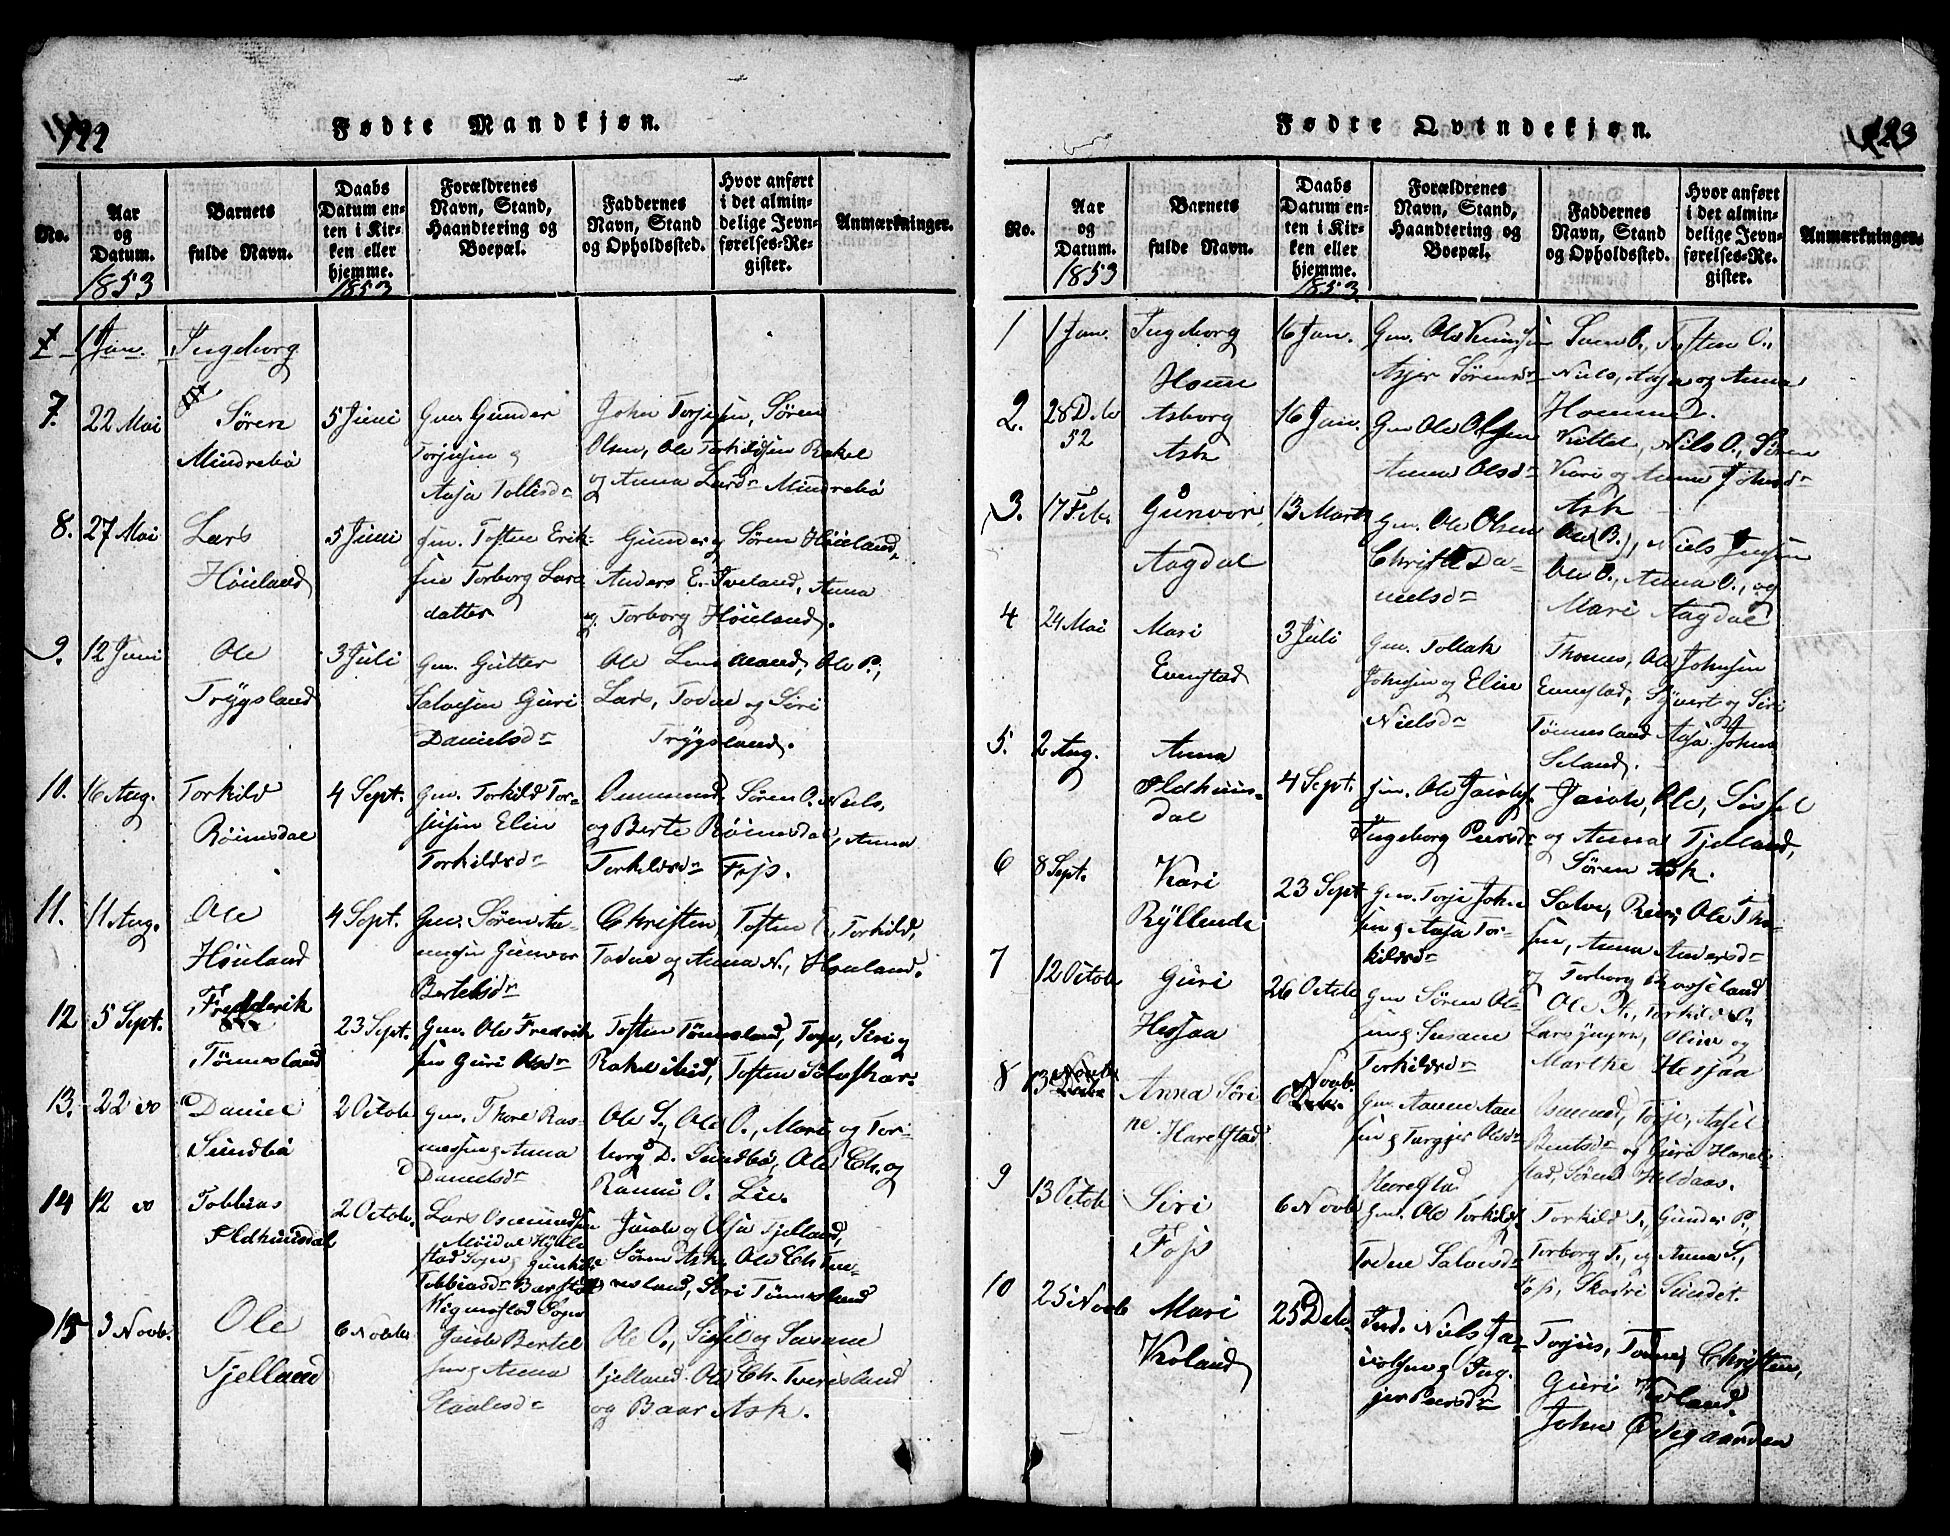 122
Fødte Mandkjøn.
No.
Aar
og
Datum.
1853
Barnets
fulde Navn.
Daabs
Datum en-
ten i Kir-
ken eller
hjemme.
1853
Forældrenes
Navn, Stand,
Haandtering og
Boepæl.
Faddernes
Navn, Stand
og Opholdssted.
Hvor anført
i det almin-
delige Jevn-
førelses-Re-
gister.
Anmærkninger.
1 Jan. Ingeborg
7. 22 Mai
Søren
Mindrebø
5 Juni
Gm. Gunder
Torjusen &
Aasa Tollisdr
John Torjusen, Søren
Olsen, Ole Torkildsen Rakel
og Anna Larsdr Mindrebø
8. 27 Mai
Lars
Høieland
5 Juni
Gm. Tosten Erik-
sen Torborg Lars
datter
Gunder og Søren Høieland,
Anders E. Iveland, Anna
og Torborg Høieland.
9. 12 Juni
Ole
Trygsland
3 Juli
Gm. Gutter
Salvesen Guri
Danielsdr
Ole Lens Aland, Ole P.,
Lars, Todne og Siri
Trygsland.
10. 16 Aug.
Torkild
Røinsdal
4 Sept.
Gm. Torkild Tor-
jusen Elin
Torkildsdr
Søren O. Niels,
og Berte Røinsdal, Anna
Torkildsdr Foss.
11. 11 Aug.
Ole
Høieland
4 Sept.
Gm. Søren Aa-
nensen Gunvor
Bertelsdr
Christen, Tosten Torkild,
Todne og Anna N., Høieland.
12 5 Sept.
Frederik
Tønnesland
23 Sept.
Gm. Ole Fredrik
sen Guri Olsdr
Tosten Tønnesland, Torje, Siri og
Rakel ibid, Tosten Solvskar.
13. 22
Daniel
Sundbø
2 Octobr
Gm. Thore Ras-
mussen & Anna
Danielsdr
Ole S., Ole O., Mari og Tor-
borg D. Sundbø, Ole Ch. og
Rannei O. Lie.
14 12
Tobbias
Fldhunsdal
2 Octobr.
Lars Osmundsen
Moidal Hylle
stad Sogn & Gunhild
Tobbiasdr Barstad
Wigmostad Sogn
Jacob og Olja Tjelland,
Søren Ask, Ole Ch Tve-
resland, Siri Tønnesland
15 3 Novb.
Ole
Tjelland
6 Novbr
Jacob Bertel
sen & Anna
Staalesdr
Ole O., Sissel og Susane
Tjelland. Ole Ch. Tveresland
og Baar Ask.
123
Fødte Qvindekjøn.
No.
Aar
og
Datum.
1853
Barnets
fulde Navn.
Daabs
Datum en-
ten i Kir-
ken eller
hjemme.
1853
Forældrenes
Navn, Stand,
Haandtering og
Boepæl.
Faddernes
Navn, Stand
og Opholdssted.
Hvor anført
i det almin-
delige Jevn-
førelses-Re-
gister.
Anmærkninger.
1 1 Jan.
Ingeborg
Homme
16 Jan.
Gm. Ole
Asjer Sørensdr
Sven O., Tosten O.,
Niels, Aasa og Anna
Homme.
2. 28 Dcbr
52
Asborg
Ask
16 Jan.
Gm Ole Olsen
Anna Olsdr
Kittel, Nils O., Søren
Kari og Anna Johnsdr
Ask
3. 17 Feb.
Gunvor
Aagdal
13 Marts
Gm. Ole Olsen
Christi Da-
nielsdr
Ole (B.), Niels Jensen
Ole O., Anna O., og
Mari Aagdal
4 24 Mai
Mari
Evenstad
3 Juli
Gm. Tollak
Johnsen og Elin
Nielsdr
Thomes, Ole Johnsen
Evenstad, Syvert og Siri
Tønnesland Aasa Johns
Seland.
5. 2 Aug.
Anna
Fldhuns-
dal
4 Sept.
Gm. Ole Jacobs.
Ingeborg Peersdr
Jacob, Ole, Sissel
og Anna Tjelland,
Søren Ask.
6 8 Sept.
Kari
Ryllende
23 Sept
Gm. Torje John
sen & Aasa Tor-
kildsdr
Salve, Reier, Ole Tho-
sen, Anna Andersdr
og Torborg Rosseland
7 12 Octobr
Guri
Hesjaa
26 Octobr
Gm Søren Ole
sen & Susane
Torkildsdr
Ole N., Torkild L.
Lars Jensen, Oline og
Marthe Hesjaa
8 13 Novbr
Anna Søri
ne Harestad
6 Novb
Gm. Aanen Aan
sen & Turgjer Olsdr
Harestad
Osmund, Torje, Aasel
Bentsdr og Guri Hare-
stad, Søren Heldaas.
9 13 Octobr
Siri
Foss
6 Novb
Gm. Ole Torkilds
Todne Salvesdr
Torkild T., Gunder P.,
Torborg T., og Anna S.,
Foss, Skadvi Sundet
10 25 Novbr
Mari
Kvoland
25 Debr
Ind. Niels Ja-
cobsen & Ing-
jer Peersdr
Torjus, Todne, Christen,
Guri Kvoland
John Ødegaarden